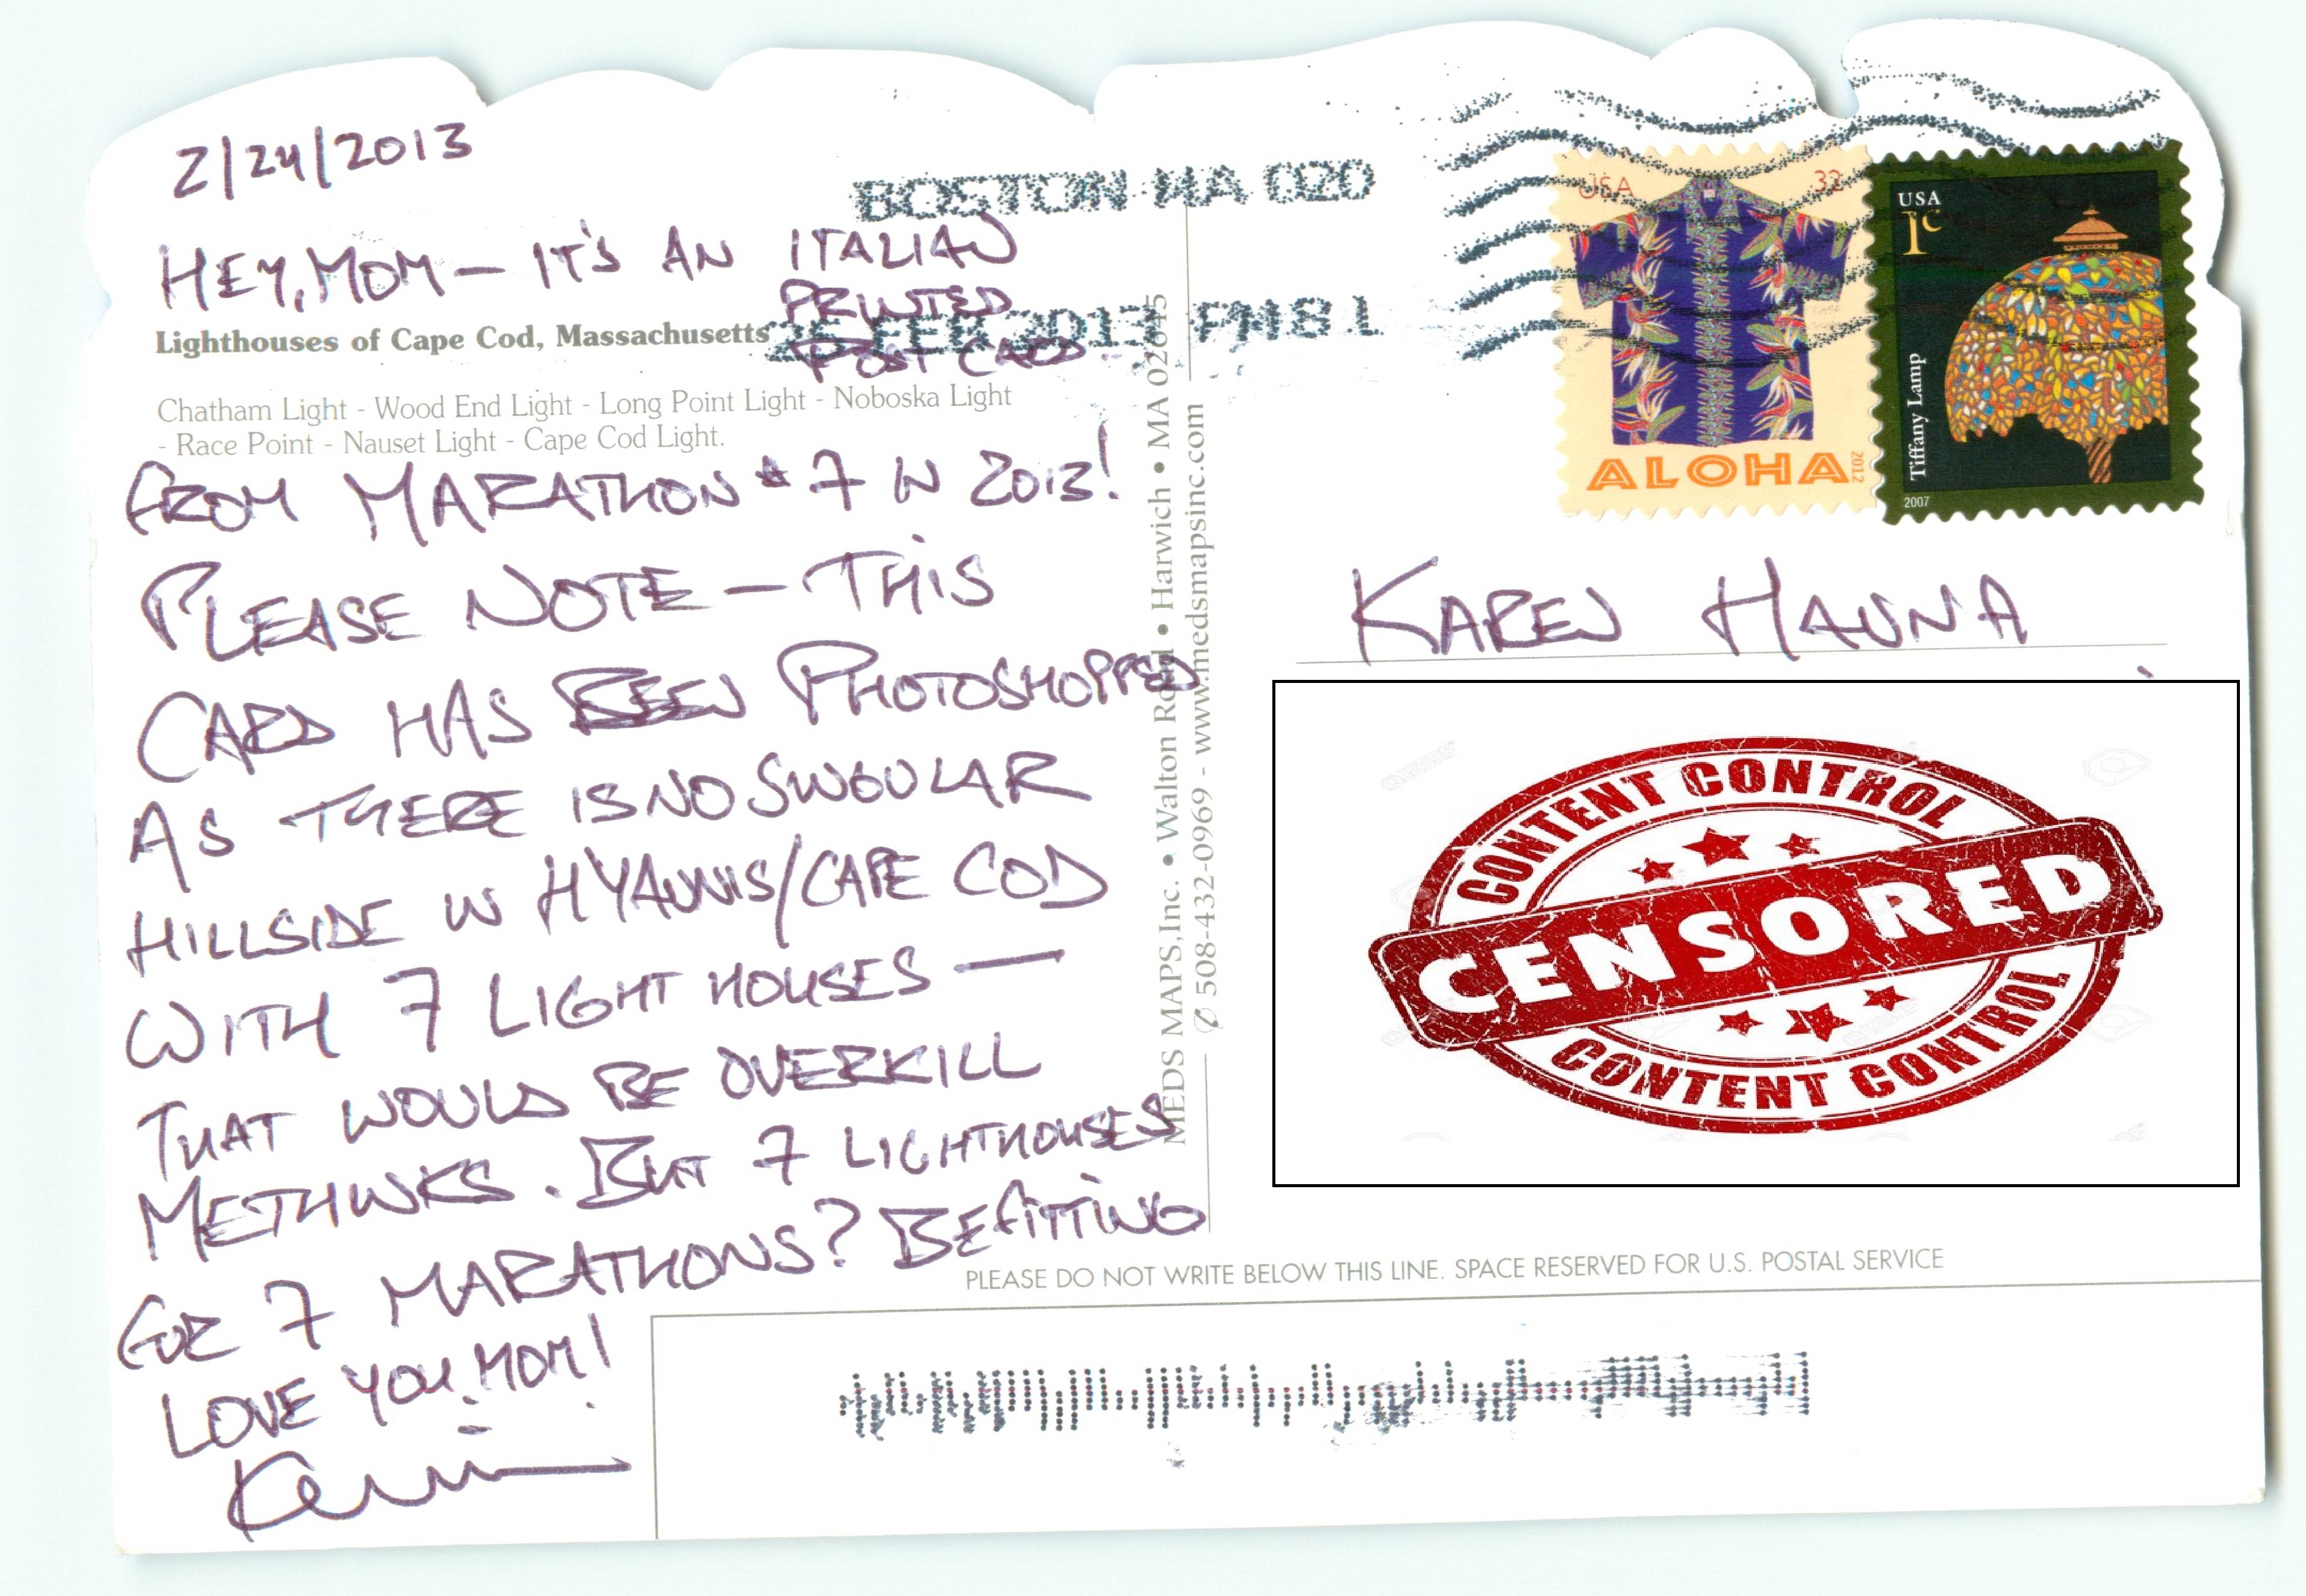 2/24/2013
HEY, MOM — IT'S AN ITALIAN
PRINTED
POST CARD
Lighthouses of Cape Cod, Massachusetts
Chatham Light - Wood End Light - Long Point Light - Noboska Light
- Race Point - Nauset Light - Cape Cod Light.
FROM MARATHON #7 IN 2013!
PLEASE NOTE — THIS
CARD HAS BEEN PHOTOSHOPPED
AS THERE IS NO SINGULAR
HILLSIDE IN HYANNIS/CAPE COD
WITH 7 LIGHT HOUSES —
THAT WOULD BE OVERKILL
METHINKS. BUT 7 LIGHTHOUSES
FOR 7 MARATHONS? BEFITTING
LOVE YOU, MOM!
Kevin
MEDS MAPS, Inc. • Walton Road • Harwich • MA 02645
✆ 508-432-0969 - www.medsmapsinc.com
BOSTON MA 020
25 FEB 2013 PM 8 L
USA 32
ALOHA
2012
USA
1c
Tiffany Lamp
2007
KAREN HANNA
CONTENT CONTROL
CENSORED
CONTENT CONTROL
PLEASE DO NOT WRITE BELOW THIS LINE. SPACE RESERVED FOR U.S. POSTAL SERVICE